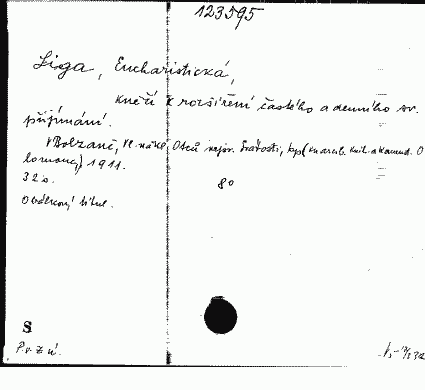 123595
Liga, Eucharistická,
kněží k rozšíření častého a denního sv.
přijímání.
V Bolzaně, Vl. nákl. Otců nejsv. Svátosti,
lomouc), 1911.
32 s. 8°
Obálkový titul.
S